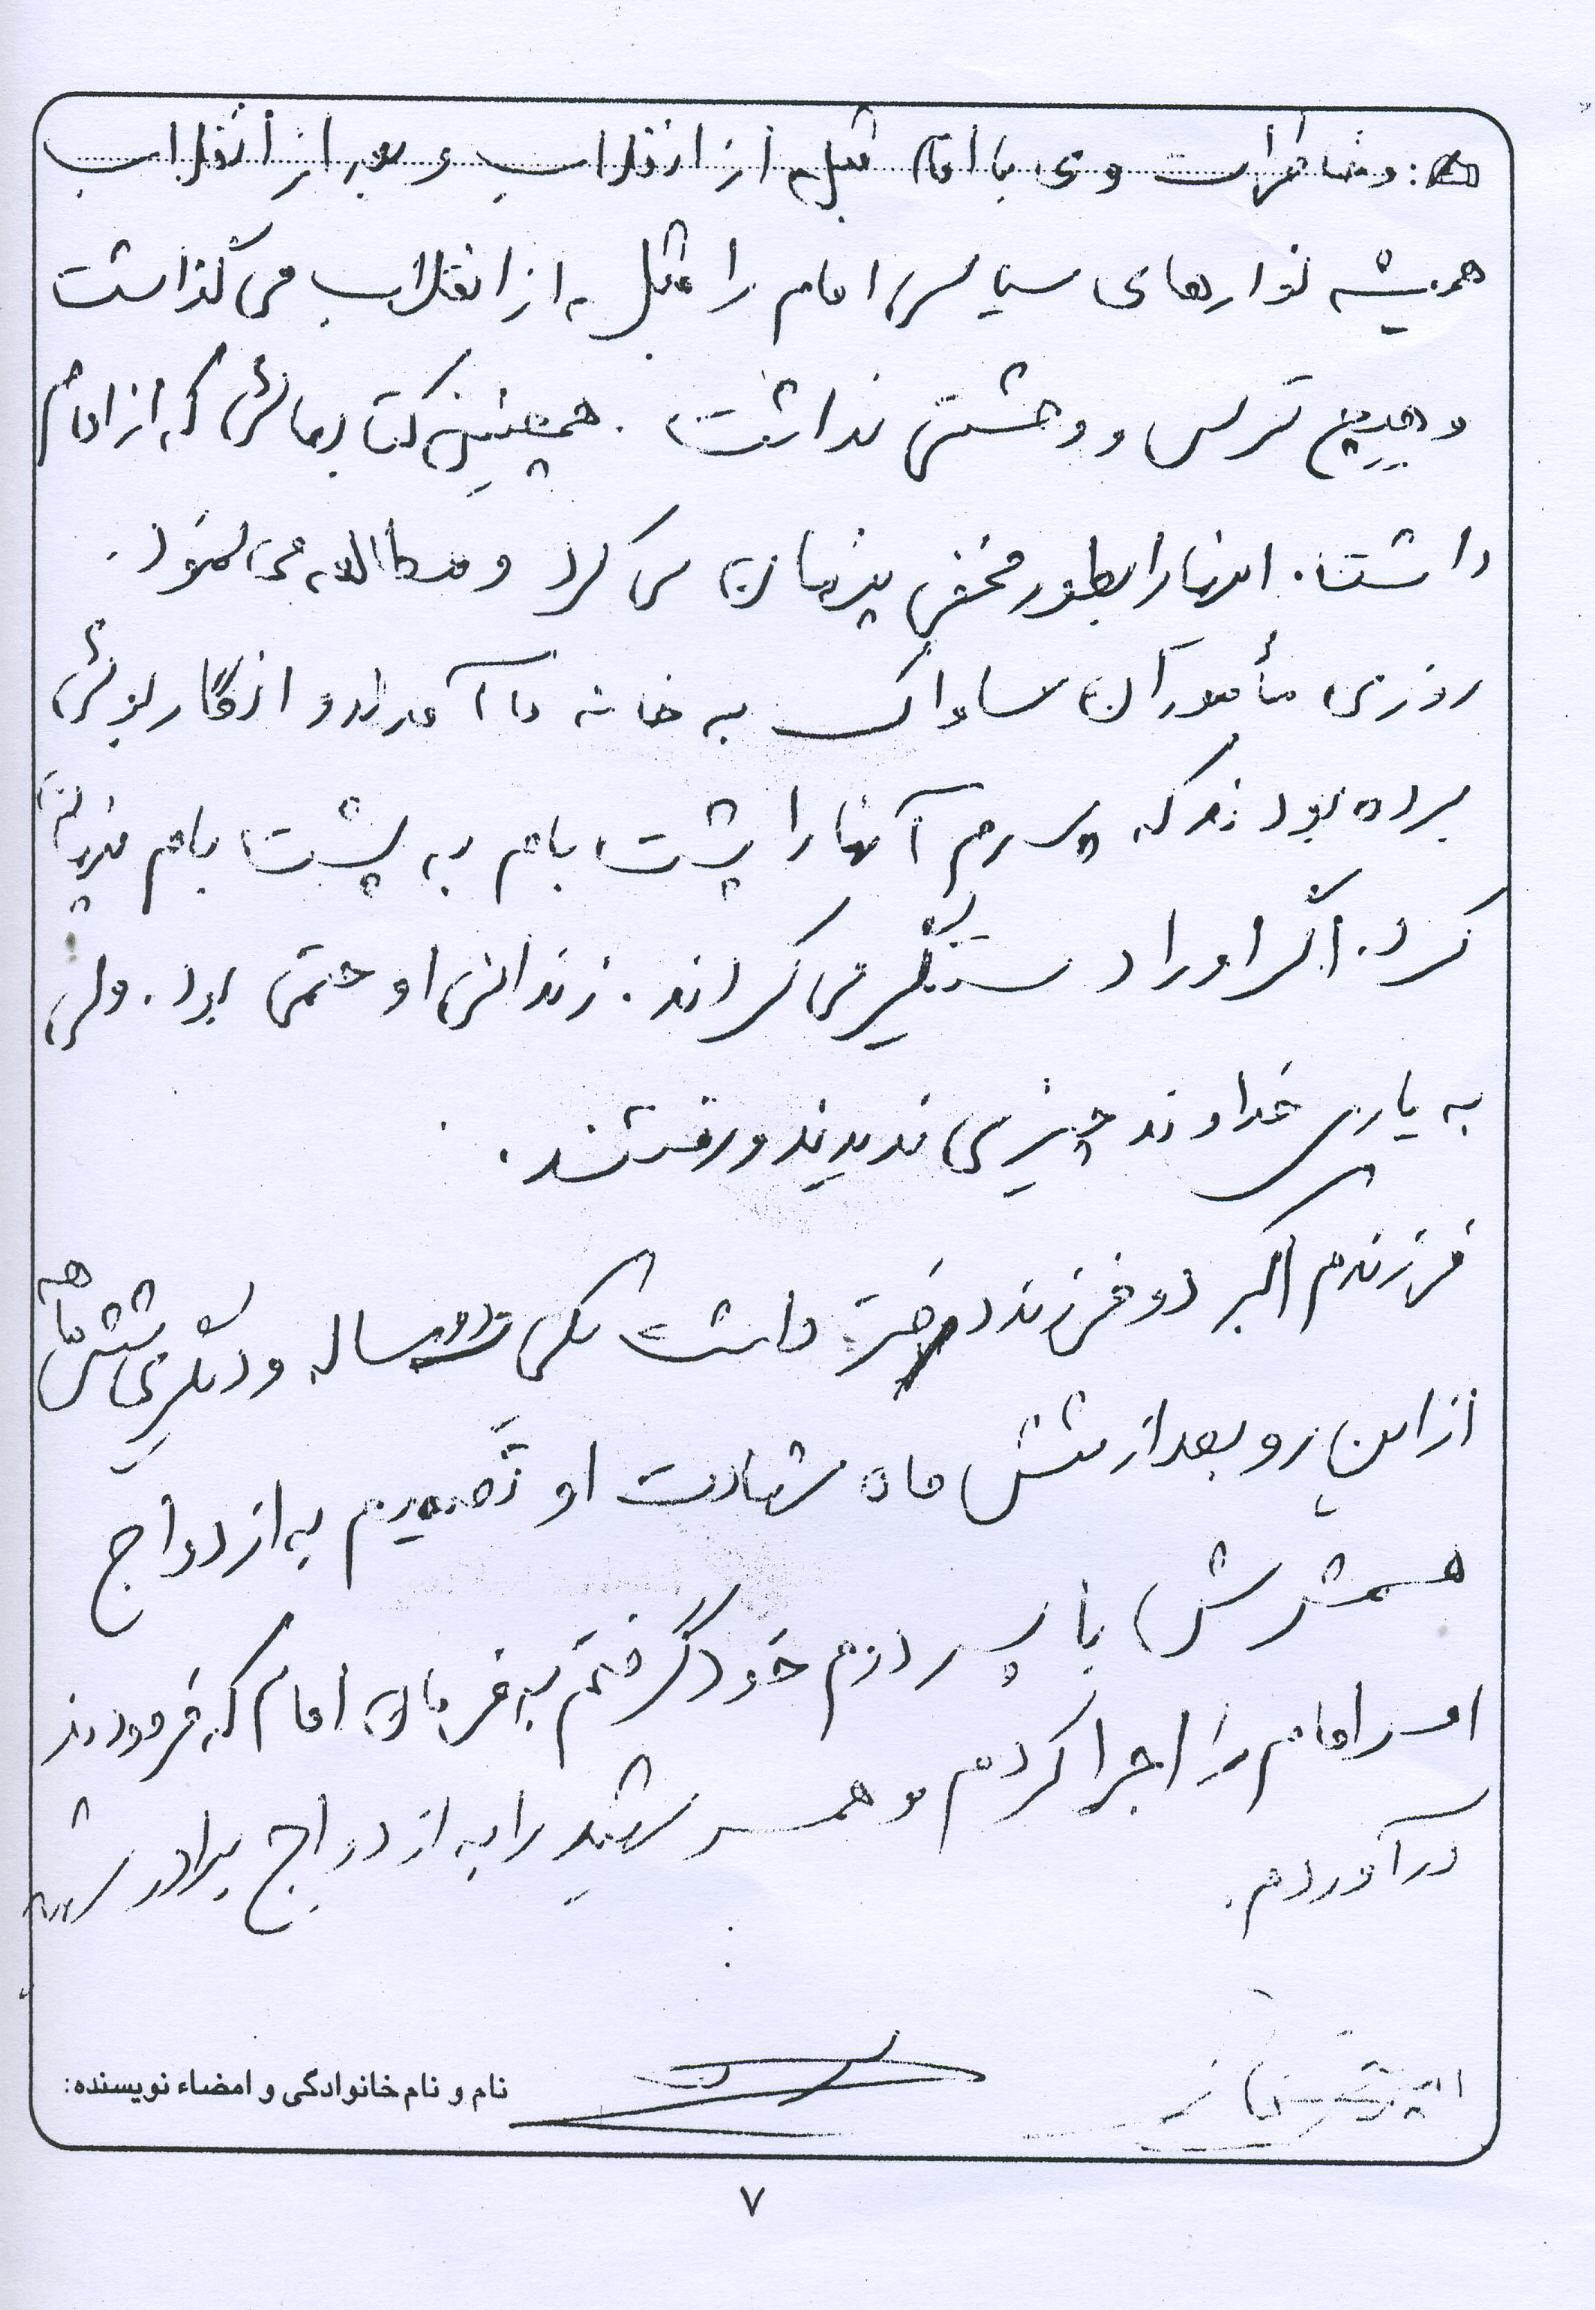 خاطرات وی با امام قبل از انقلاب و بعد از انقلاب
همیشه نوارهای سیاسی امام را قبل از انقلاب می گذاشت
و هیچ ترس و وحشتی نداشت . همچنین کتابهائی که از امام
داشت . اینها را بطور مخفی پنهان می کرد و مطالعه می نمود .
روزی مأموران ساواک به خانه ما آمدند و انگار بوئی
برده بودند که پسرم آنها را پشت بام به پشت بام پنهان
کرد . اگر او را دستگیر می کردند . زندانی او حتمی بود . ولی
به یاری خداوند چیزی ندیدند و رفتند .
فرزندم اکبر دو فرزند دختر داشت یکی ساله و دیگری شش ماهه
از این رو بعد از شش ماه شهادت او تصمیم به ازدواج
همسرش با پسر دوم خود گرفتم به فرمان امام که فرمودند
امر امام را اجرا کردم و همسر شهید را به ازدواج برادر شهید
در آوردم .
نام و نام خانوادگی و امضاء نویسنده:
۷